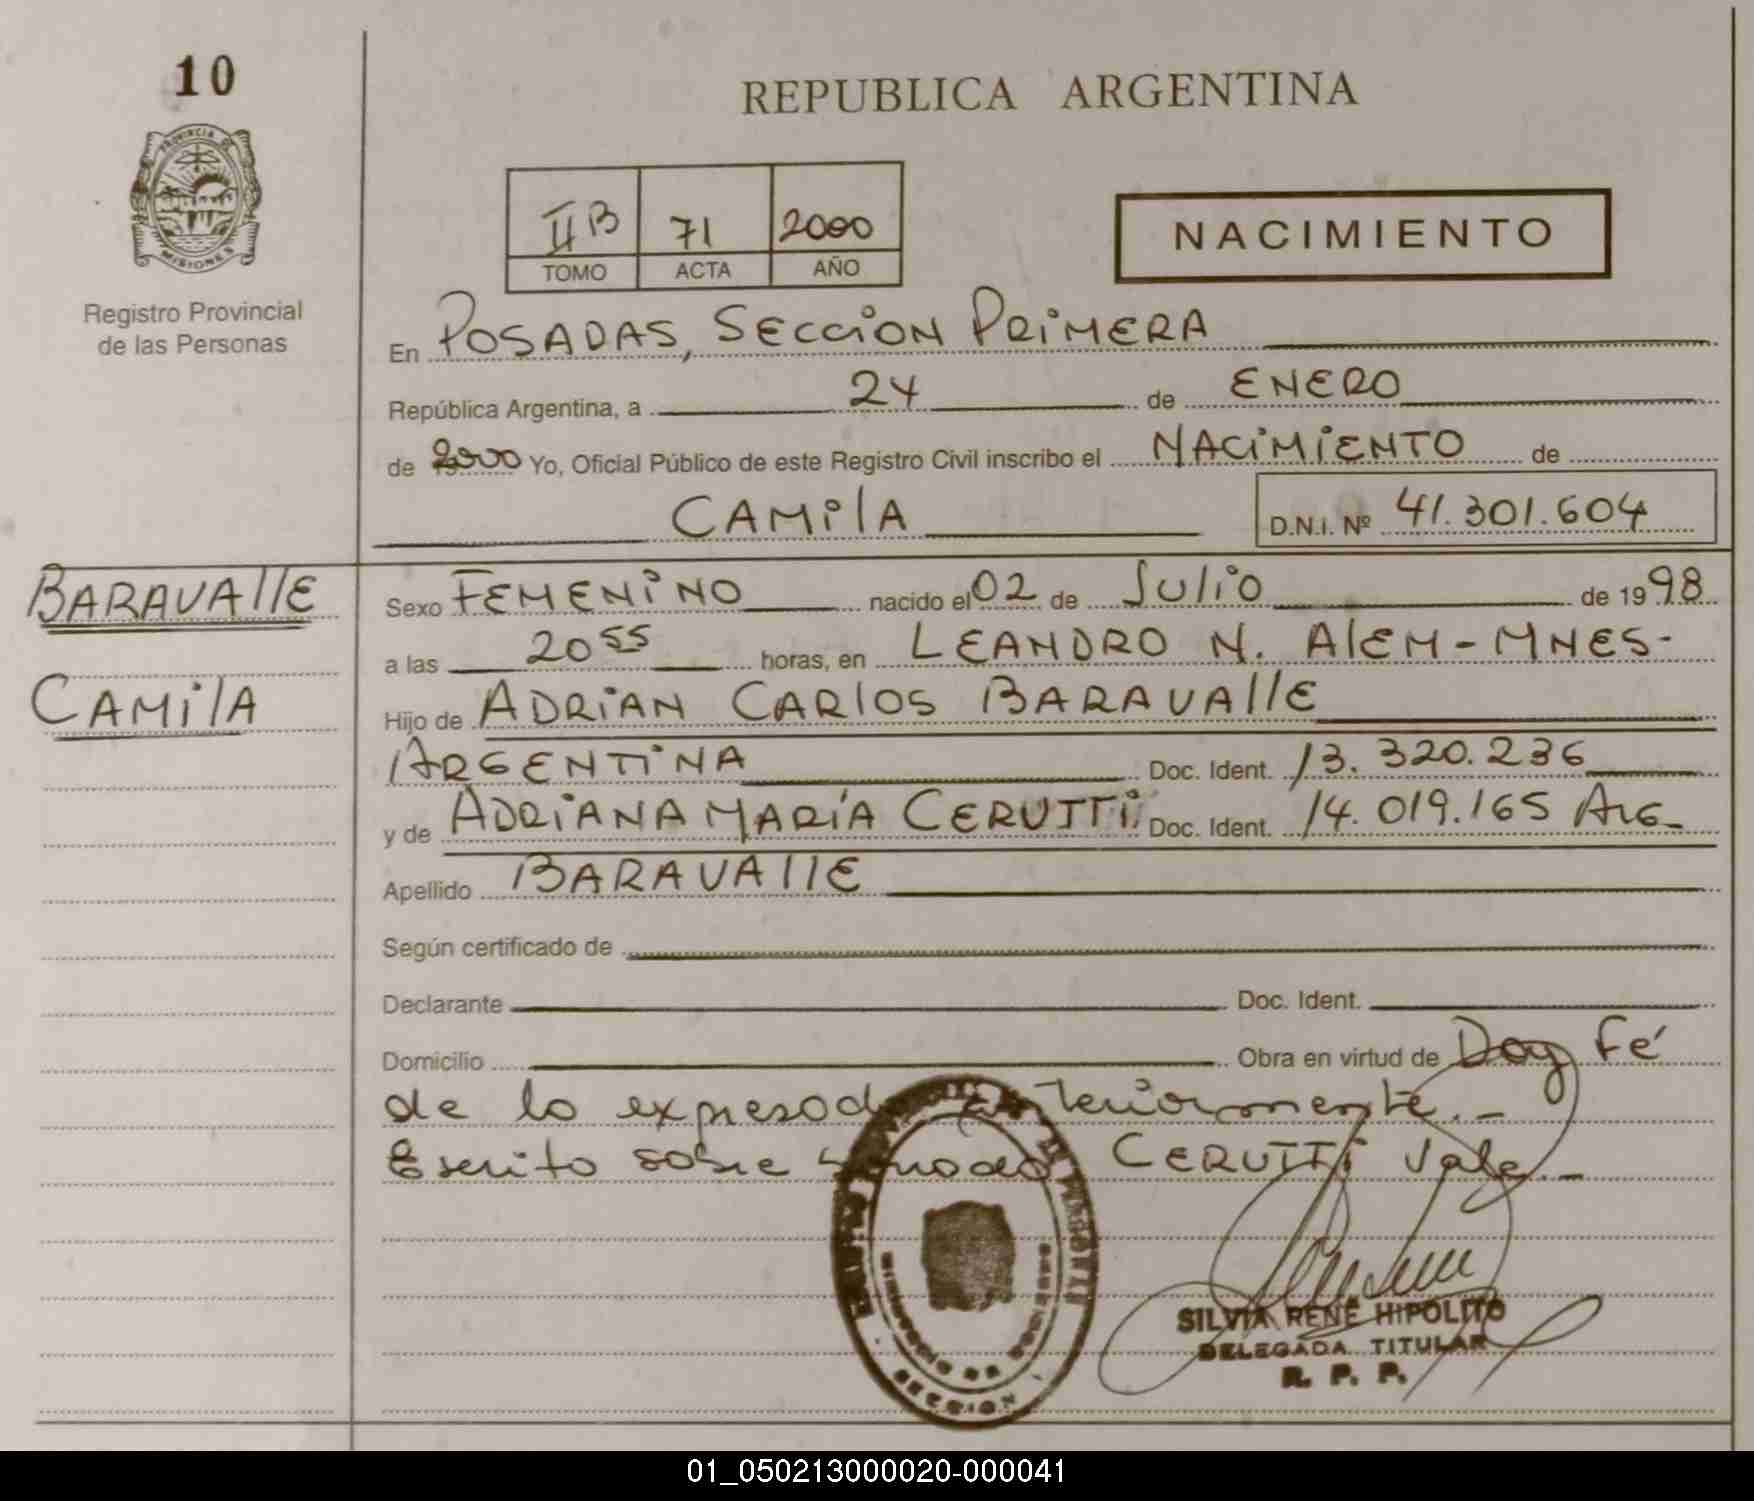 10
PROVINCIA DE
MISIONES
Registro Provincial
de las Personas
REPUBLICA ARGENTINA
IIB 71 2000
TOMO ACTA AÑO
NACIMIENTO
En POSADAS, SECCION PRIMERA
República Argentina, a 24 de ENERO
de 2000 Yo, Oficial Público de este Registro Civil inscribo el NACIMIENTO de
CAMILA D.N.I. Nº 41.301.604
BARAVALLE
CAMILA
Sexo FEMENINO nacido el 02 de JULIO de 1998
a las 20 55 horas, en LEANDRO N. ALEM - MNES-
Hijo de ADRIAN CARLOS BARAVALLE
ARGENTINA Doc. Ident. 13.320.236
y de ADRIANA MARÍA CERUTTI Doc. Ident. 14.019.165 ARG-
Apellido BARAVALLE
Según certificado de
Declarante Doc. Ident.
Domicilio Obra en virtud de Doy Fé
de lo expresado anteriormente.-
Escrito sobre CERUTTI Vale.-
SECCION
SILVIA RENÉ HIPOLITO
DELEGADA TITULAR
R. P. P.
01_050213000020-000041